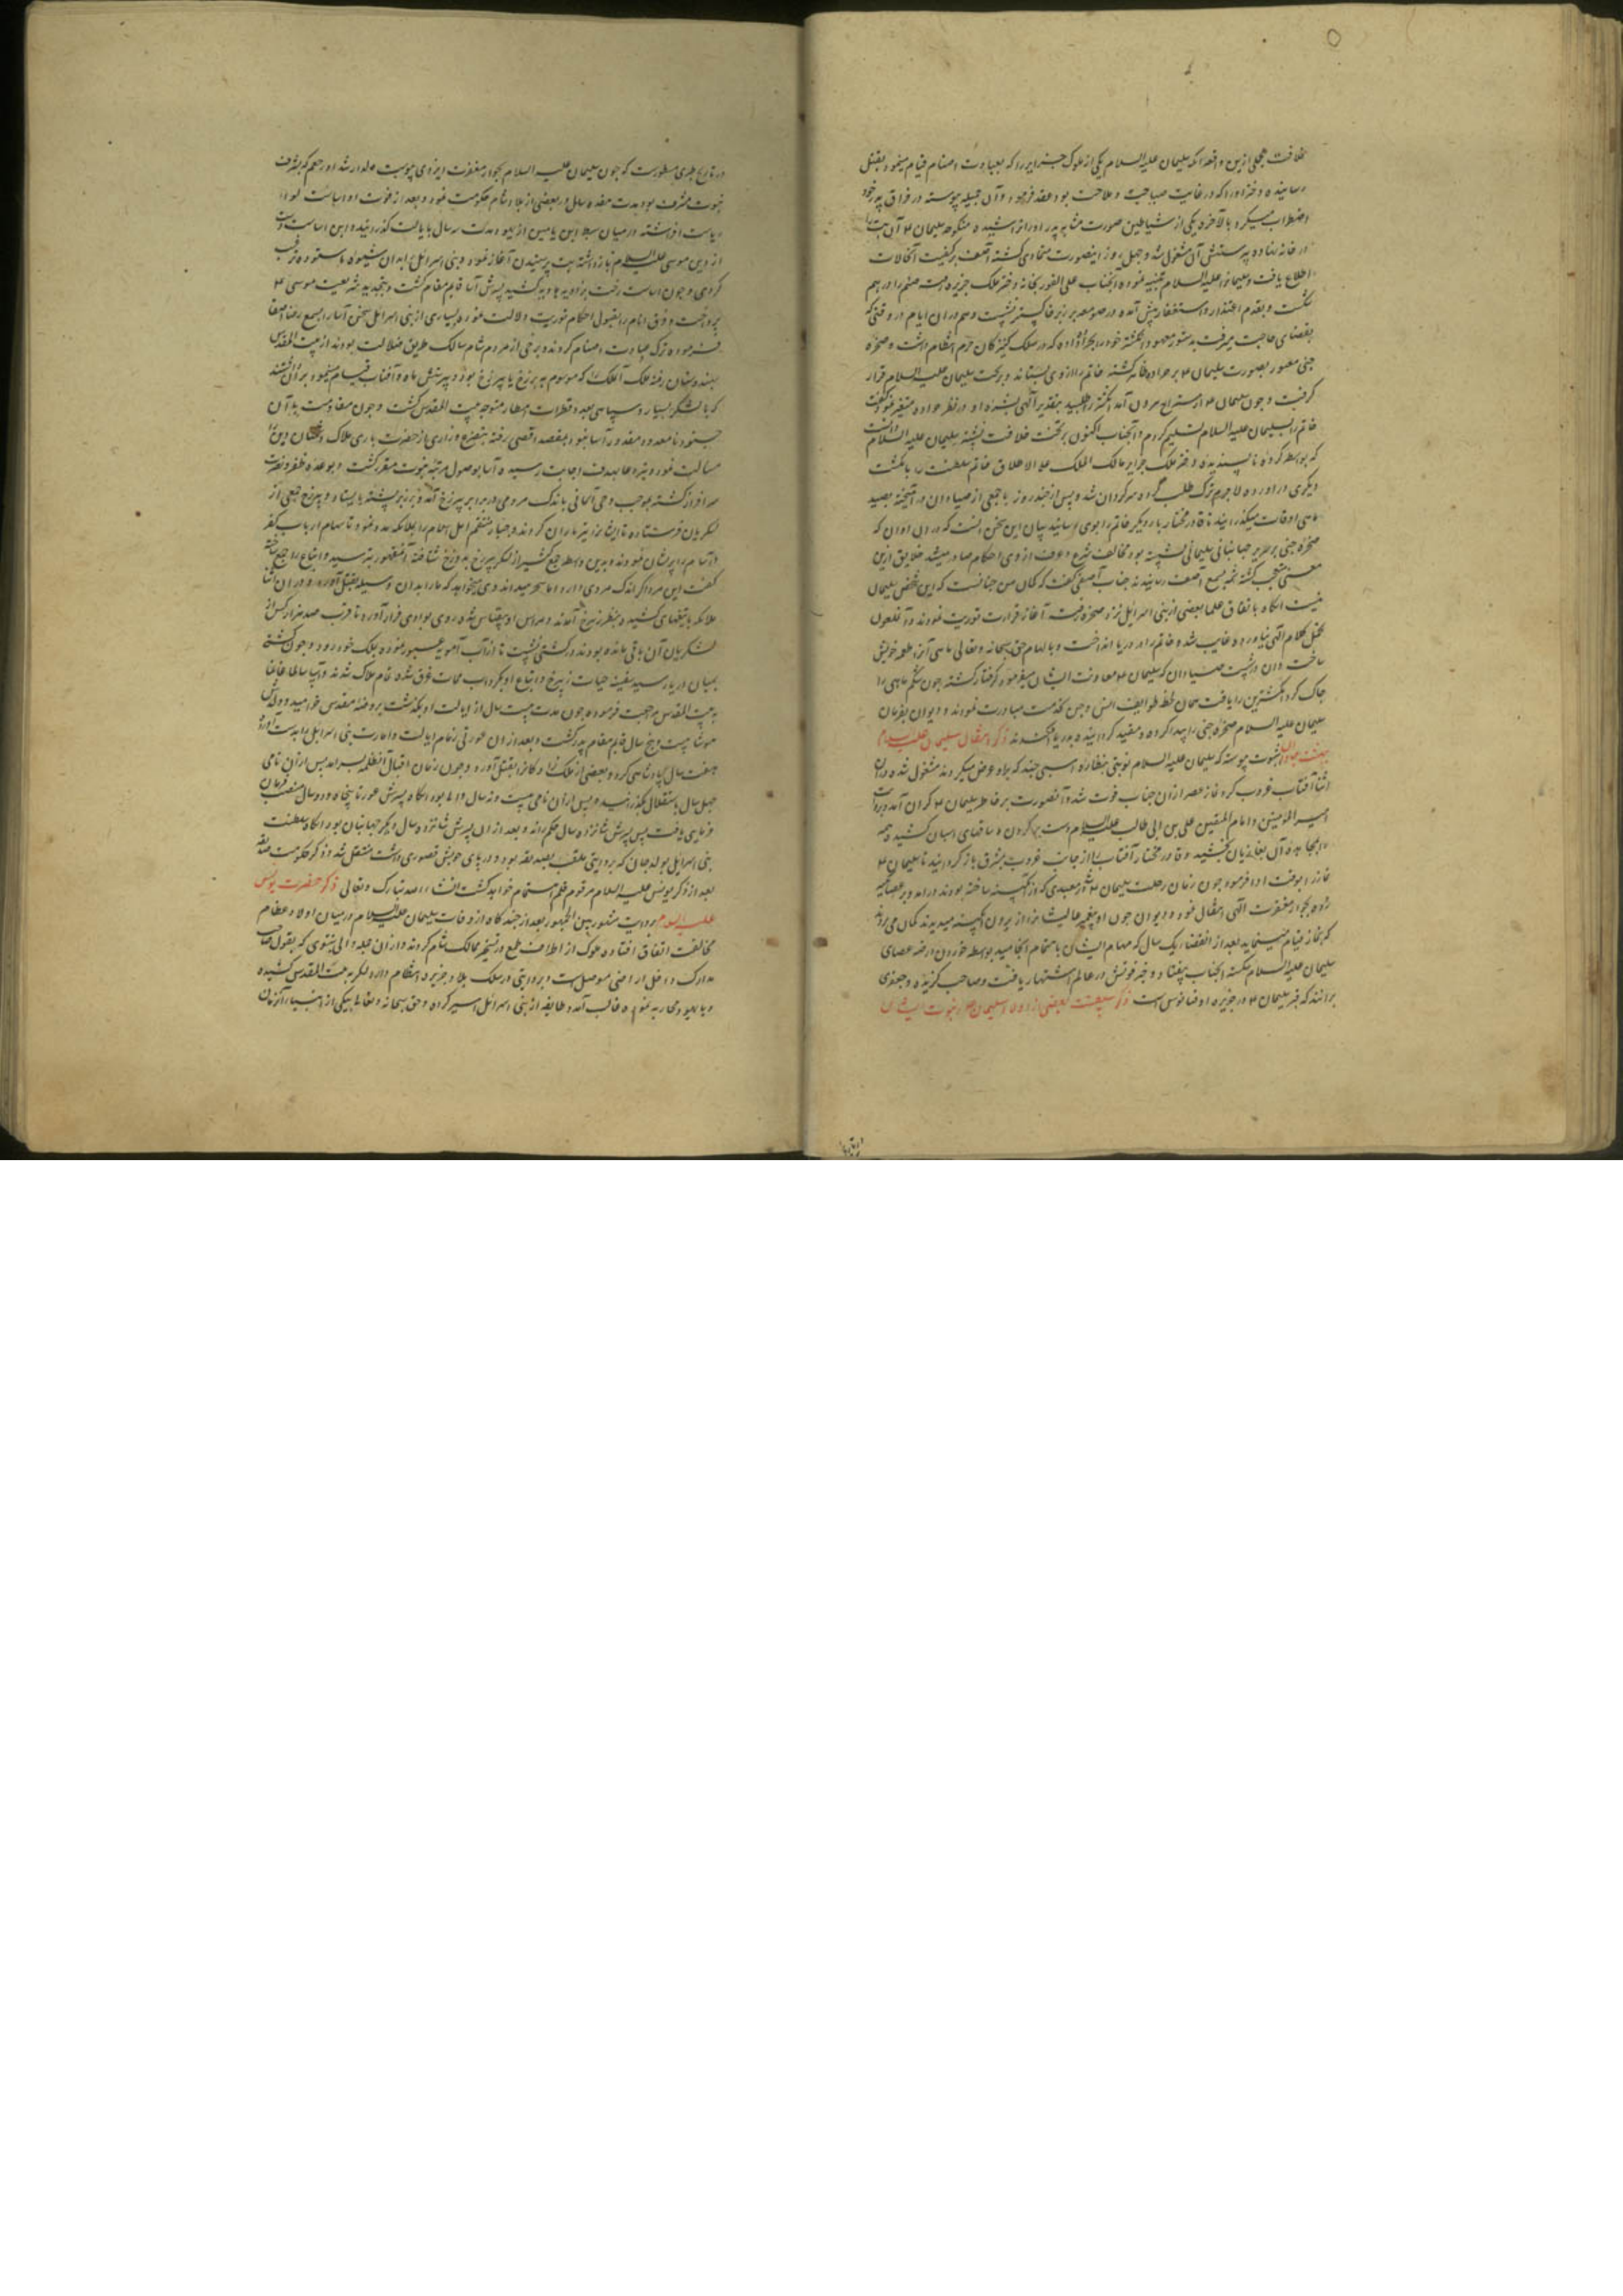 خلافت مجملی ازین واقعه آنکه سلیمان علیه السلام یکی از ملوک جزایر را که بعبادت اصنام قیام مینمود بقتل
رسانیده دختر او را که در غایت صباحت و ملاحت بود عقد فرمود و آن جمیله پیوسته در فراق پدر خود
اضطراب میکرد بالآخره یکی از شیاطین صورت مشابه پدر او تراشیده منکوحه سلیمان ع آن بت را
در خانه نهاده بپرستش آن مشغول شد و چهل روز اینصورت متمادی گشته آصف بر کیفیت آن حالات
اطلاع یافت و سلیمان را علیه السلام تنبیه نموده آنجناب علی الفور بخانه دختر ملک جزیره رفت صنم را درهم
شکست و بقدم اعتذار و استغفار پیش آمده در صومعه بر زبر خاکستر نشست و هم در ان ایام در وقتی که
بقضای حاجت میرفت بدستور معهود انگشتر خود را بجراده داده که در سلک کنیزکان حرم انتظام داشت و صخره
جنی مصور بصورت سلیمان ع بر جراده ظاهر گشته خاتم را از وی بستاند و بر تخت سلیمان علیه السلام قرار
گرفت و چون سلیمان ع از مستراح بیرون آمد انگشتر طلبید بتقدیر الهی بشره او در نظر جراده متغیر نمود گفت
خاتم را بسلیمان علیه السلام تسلیم کردم و آنجناب اکنون بر تخت خلافت نشسته سلیمان علیه السلام دانست
که بواسطه کرده ناپسندیده دختر ملک جزایر مالک الملک علی الاطلاق خاتم سلطنت را بانگشت
دیگری در آورده لاجرم ترک طلب کرده سرگردان شد و پس از چند روز با جمعی از صیادان در آمیخته بصید
ماهی اوقات میگذرانید تا قادر مختار بار دیگر خاتم را بوی رسانید بیان این سخن آنست که در ان اوان که
صخره جنی بر سریر جهانبانی سلیمانی نشسته بود مخالف شرع و عرف از وی احکام صادر میشد خلایق ازین
معنی متعجب گشته قصه بسمع آصف رسانیدند جناب آصفی گفت که گمان من چنانست که این شخص سلیمان
نیست آنگاه باتفاق علما بعضی از بنی اسرائیل نزد صخره رفته آغاز قرائت توریت نمودند و آن ملعون
تحمل کلام الهی نیاورده غایب شد و خاتم را در دریا انداخت و بالهام حق سبحانه و تعالی ماهی آنرا طعمه خویش
ساخت و آن ماهی بشست صیادان که سلیمان ع معاونت ایشان میفرمود گرفتار گشته چون شکم ماهی را
چاک کرد انگشترین را یافت همان لحظه طوایف انس و جن بخدمت مبادرت نمودند و دیوان بفرمان
سلیمان علیه السلام صخره جنی را پیدا کرده و مقید گردانیده بدریا افکندند ذکر انتقال سلیمان علیه السلام
بهشت جاودان بثبوت پیوسته که سلیمان علیه السلام نوبتی بنظاره اسبی چند که برو عرض میکردند مشغول شد و در ان
اثنا آفتاب غروب کرد نماز عصر از ان جناب فوت شد و آنصورت بر خاطر سلیمان ع گران آمد بروایت
امیر المؤمنین و امام المتقین علی بن ابی طالب علیه السلام دست بر گردن و ساقهای اسبان کشید و همه
نماز را بوقت ادا فرمود چون زمان رحلت سلیمان ع در معبدی که از آبگینه ساخته بودند در آمد و بر عصا تکیه
زده بجوار مغفرت الهی انتقال نمود و دیوان چون او پیغمبر عالیشان را از بیرون آبگینه میدیدند گمان می بردند
که بنماز قیام مینماید بعد از انقضای یک سال که مهام ایشان باتمام انجامید بواسطه خوردن ارضه عصای
سلیمان علیه السلام شکسته آنجناب بیفتاد و خبر فوتش در عالم اشتهار یافت و صاحب گزیده و جعفری
برانند که قبر سلیمان ع در جزیره اوقیانوس است ذکر سلطنت بعضی از اولاد سلیمان ع و نبوت ایشان
در تاریخ طبری مسطورست که چون سلیمان علیه السلام بجوار مغفرت ایزدی پیوست ولد ارشد او رحبعم که بشرف
نبوت مشرف بود مدت هفده سال در بعضی از بلاد شام حکومت نمود و بعد از فوت او اسات لوای
از دین موسی علیه السلام باز داشته بت پرستیدن آغاز نمود و بنی اسرائیل را بدان شیوه ناستوده ترغیب
کردی و چون اسات رخت بزاویه هاویه کشید پسرش آسا قایم مقام گشت و بتجدید شریعت موسی ع
پرداخت و فرق انام را بقبول احکام توریت دلالت نموده بسیاری از بنی اسرائیل سخن آسا را بسمع رضا اصغا
فرموده ترک عبادت اصنام کردند و برخی از مردم شام سالک طریق ضلالت بودند از بیت المقدس
بهندوستان رفته ملک آن ملک را که موسوم به زرخ یا پیرزخ بود و بپرستش ماه و آفتاب قیام مینمود بران داشتند
که با لشکر بسیار و سپاهی بعدد قطرات امطار متوجه بیت المقدس گشت و چون مقاومت با آن
جنود نامعدود مقدور آسا نبود بمسجد اقصی رفته بتضرع و زاری از حضرت باری هلاک دشمنان دین را
مسالت نمود و تیر دعا بهدف اجابت رسیده آسا بوصول مرتبه نبوت مفتخر گشت و بوعده ظفر و نصرت
سرافراز گشته بموجب وحی آسمانی باندک مردمی در برابر پیرزخ آمده بر زبر پشته بایستاد و پیرزخ جمعی از
لشکریان فرستاده تا ایشان را تیرباران کردند و جبار منتقم اهل اسلام را بملائکه مدد نمود تا سهام ارباب کفر
گفت این مرد اگر اندک مردی دارد اما سحر میداند و میخواهد که ما را بدان وسیله بقتل آورد و در ان اثنا
ملائکه با تیغهای کشیده بنظر زیرخ آمدند و هراس او بیقیاس شده روی بوادی فرار آورد تا قرب صد هزار کس از
لشکریان آن باقی مانده بودند در کشتی نشست تا از آب آمویه عبور نموده بملک خود رود و چون کشتی
بمیان دریا رسید سفینه حیات زیرخ و اتباع او بگرداب ممات غرق شده تمام هلاک شدند و آسا سالما غانما
به بیت المقدس مراجعت فرموده چون مدت بیست سال از ایالت او بگذشت بروضه مقدس خرامید و ولدش
هوشا بیست و پنج سال قایم مقام پدر گشت و بعد از ان عورتی زمام ایالت و امارت بنی اسرائیل را بدست آورده
هفت سال پادشاهی کرد و بعضی از ملک زادگان را بقتل آورد و چون زمان اقبال آن ظالمه بسر آمد پس از ان نامی
چهل سال باستقلال بگذرانید و پس از ان نامی بیست و نه سال والی بود آنگاه پسرش عوزیا پنجاه و دو سال منصب فرمان
فرمایی یافت پس پسرش شانزده سال حکم راند و بعد از ان پسرش شانزده سال دیگر جهانبان بود آنگاه سلطنت
بنی اسرائیل بولد جان که بروایتی ملقب بصدیقه بود و در پای خویش قصوری داشت منتقل شد و ذکر حکومت صدیقه
بعد از ذکر یونس علیه السلام مرقوم قلم اهتمام خواهد گشت انشاء الله تبارک و تعالی ذکر حضرت یونس
علیه السلام بروایت مشهور بین الجمهور بعد از چند گاه از وفات سلیمان علیه السلام در میان اولاد عظام
مخالفت اتفاق افتاده ملوک از اطراف طمع در تسخیر ممالک شام کردند و از ان جمله والی نینوی که بقول صاحب
مدارک داخل اراضی موصل است و بروایتی در سلک بلاد جزیره انتظام دارد لشکر به بیت المقدس کشیده
و با یهود محاربه نموده غالب آمد و طایفه از بنی اسرائیل اسیر کرده و حق سبحانه و تعالی بیکی از انبیاء آنزمان